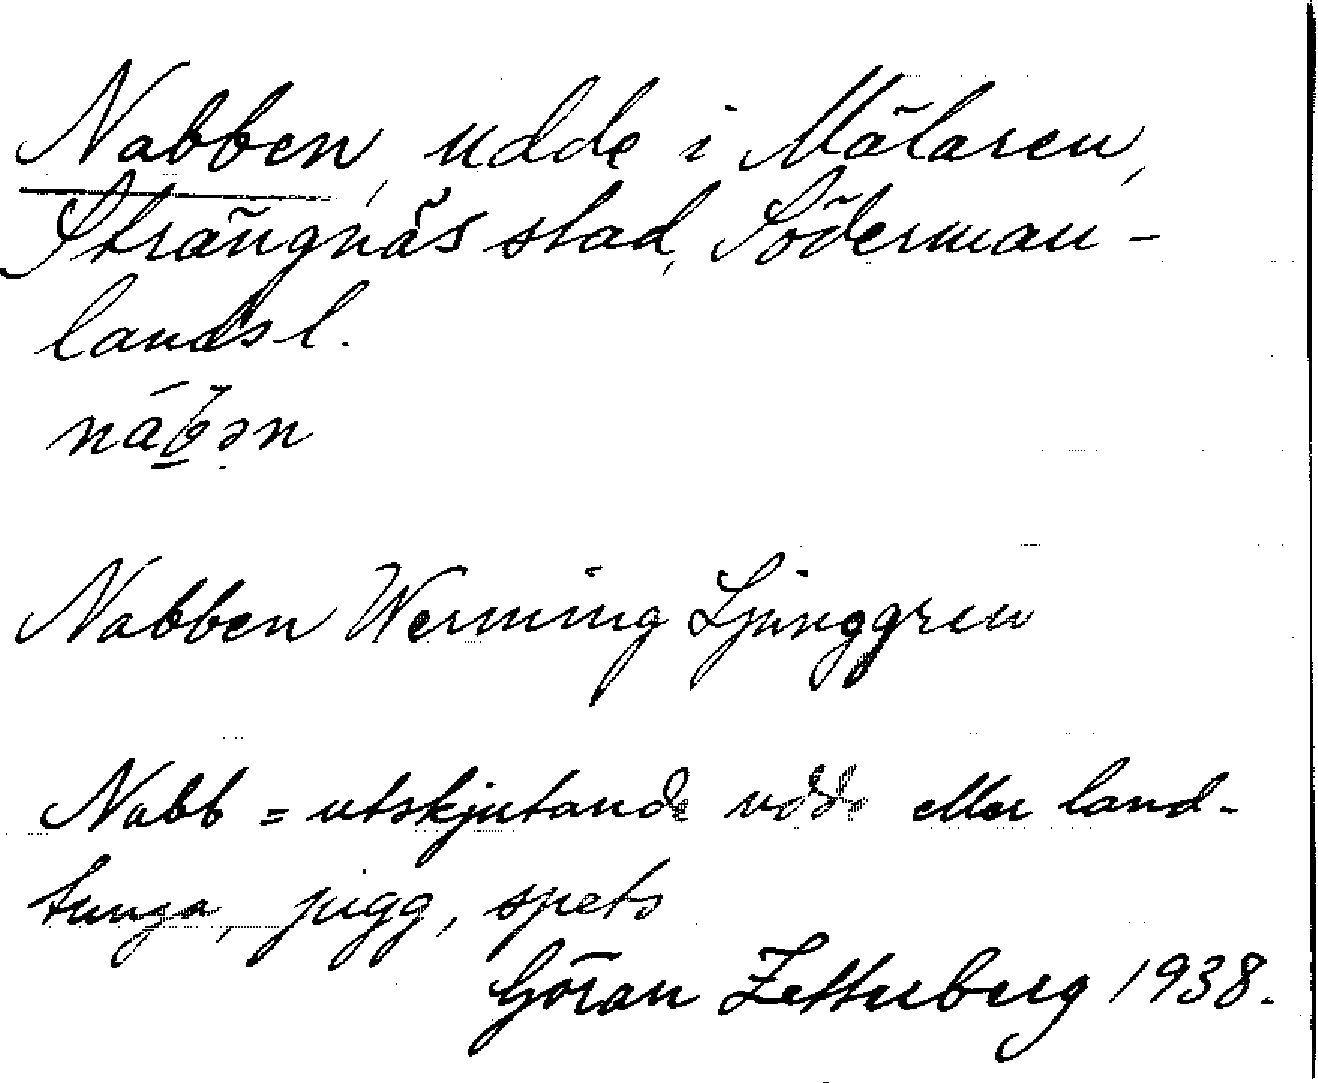 Nabben, udde i Mälaren,
Strängnäs stad, Söderman-
landsl.
nábən
Nabben Werning Ljunggren
Nabb = utskjutande udde eller land-
tunga, pigg, spets
Göran Zetterberg 1938.